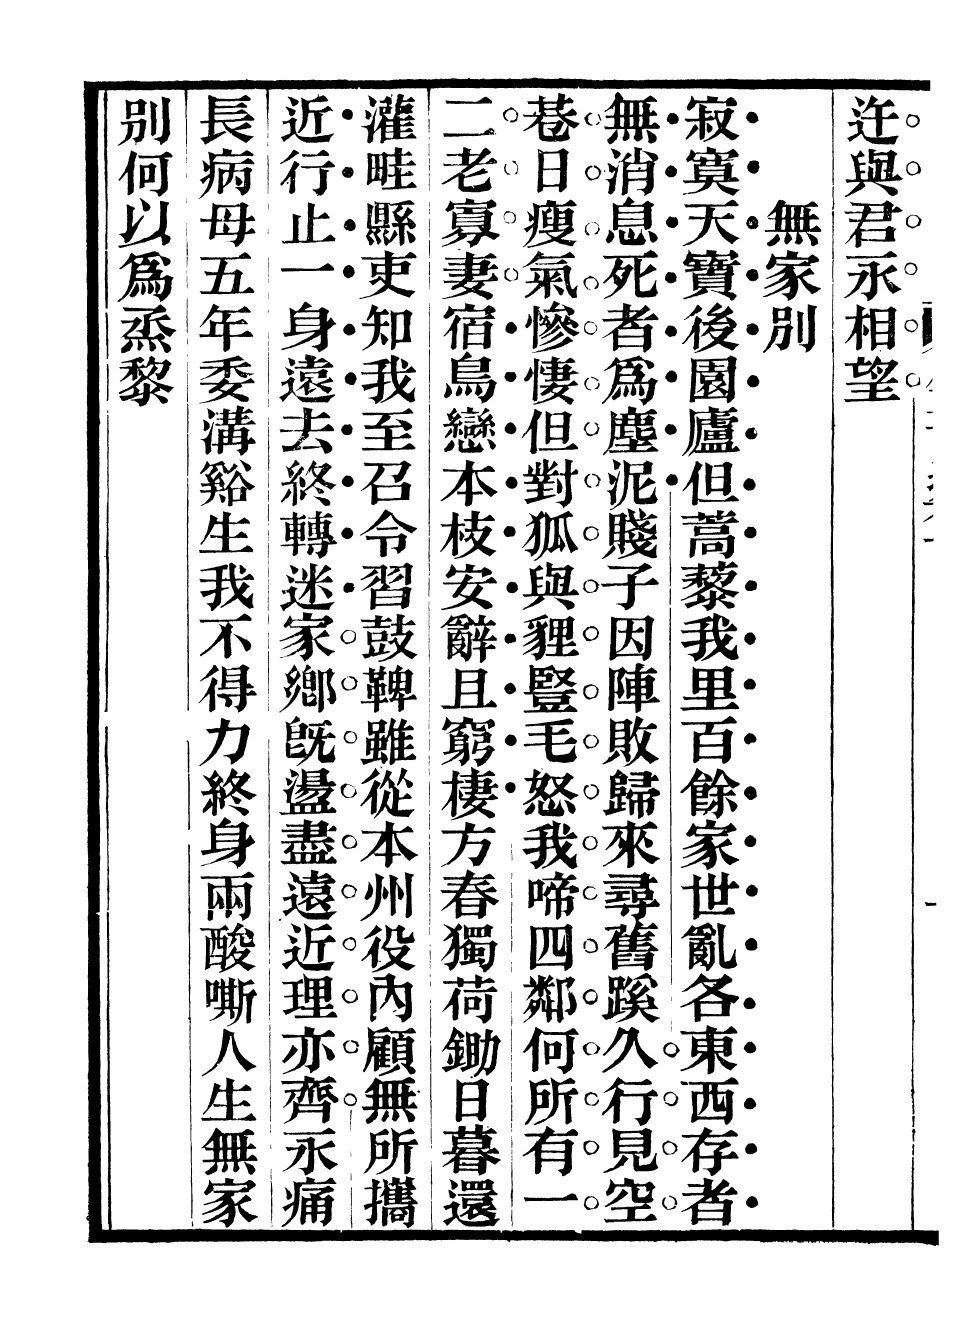 迕與君永相望
無家別
寂寞天寶後園廬但蒿藜我里百餘家世亂各東西存者
無消息死者爲塵泥賤子因陣敗歸來尋舊蹊久行見空
巷日瘦氣慘悽但對狐與貍豎毛怒我啼四鄰何所有一
二老寡妻宿鳥戀本枝安辭且窮棲方春獨荷鋤日暮還
灌畦縣吏知我至召令習鼓鞞雖從本州役內顧無所攜
近行止一身遠去終轉迷家鄉旣盪盡遠近理亦齊永痛
長病母五年委溝谿生我不得力終身兩酸嘶人生無家
別何以爲烝黎